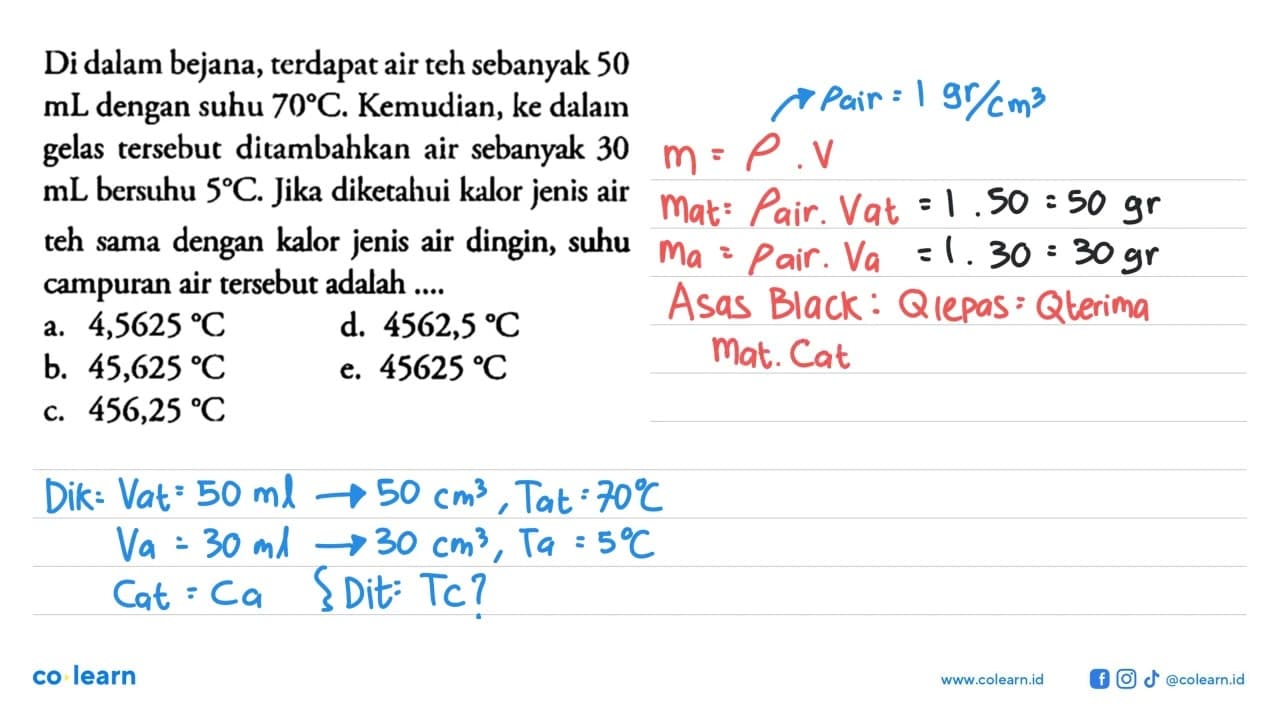 Di dalam bejana, terdapat air teh sebanyak 50
mL dengan suhu 70°C. Kemudian, ke dalam
gelas tersebut ditambahkan air sebanyak 30
mL bersuhu 5°C. Jika diketahui kalor jenis air
teh sama dengan kalor jenis air dingin, suhu
campuran air tersebut adalah ....
a. 4,5625 °C
d. 4562,5 °C
b. 45,625 °C
e. 45625 °C
c. 456,25 °C
ρair = 1 gr/cm³
m = ρ . V
Mat = ρair. Vat = 1 . 50 = 50 gr
Ma = ρair. Va = 1 . 30 = 30 gr
Asas Black : Qlepas = Qterima
Mat. Cat
Dik: Vat = 50 ml → 50 cm³, Tat = 70°C
Va = 30 ml → 30 cm³, Ta = 5°C
Cat = Ca { Dit: Tc?
co learn
www.colearn.id
@colearn.id